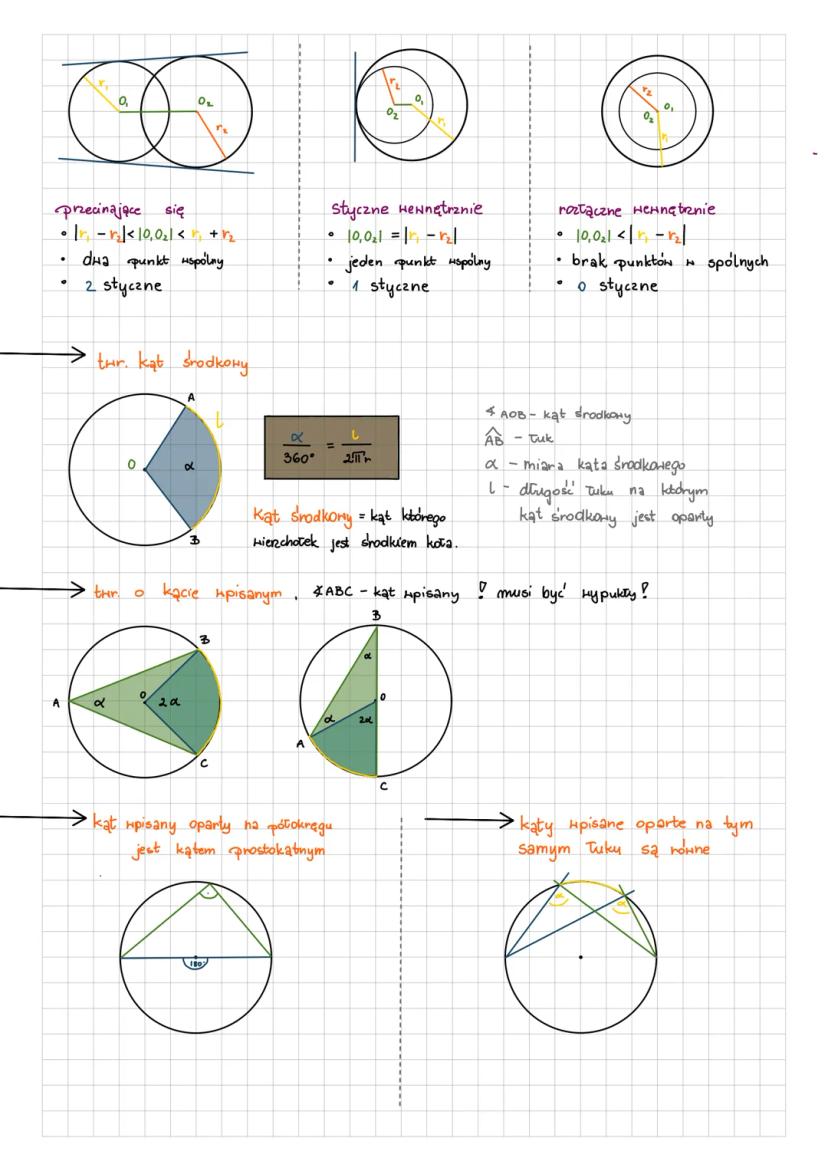 r₁ O₁ O₂ r₂
r₂ O₂ O₁ r₁
r₂ O₂ O₁ r₁
przecinające się
• |r₁ - r₂| < |O₁O₂| < r₁ + r₂
• dwa punkt wspólny
• 2 styczne
styczne wewnętrznie
• |O₁O₂| = |r₁ - r₂|
• jeden punkt wspólny
• 1 styczne
rozłączne wewnętrznie
• |O₁O₂| < |r₁ - r₂|
• brak punktów w spólnych
• 0 styczne
twr. kąt środkowy
A
l
O α
B
α/360° = l/2πr
kąt środkowy = kąt którego
wierzchołek jest środkiem koła.
∢ AOB - kąt środkowy
A͡B - łuk
α - miara kąta środkowego
l - długość łuku na którym
kąt środkowy jest oparty
twr. o kącie wpisanym , ∢ABC - kąt wpisany ! musi być wypukły !
B
A α O 2α
C
B
α
O
α 2α
A
C
kąt wpisany oparty na półokręgu
jest kątem prostokątnym
180°
kąty wpisane oparte na tym
samym łuku są równe
α α